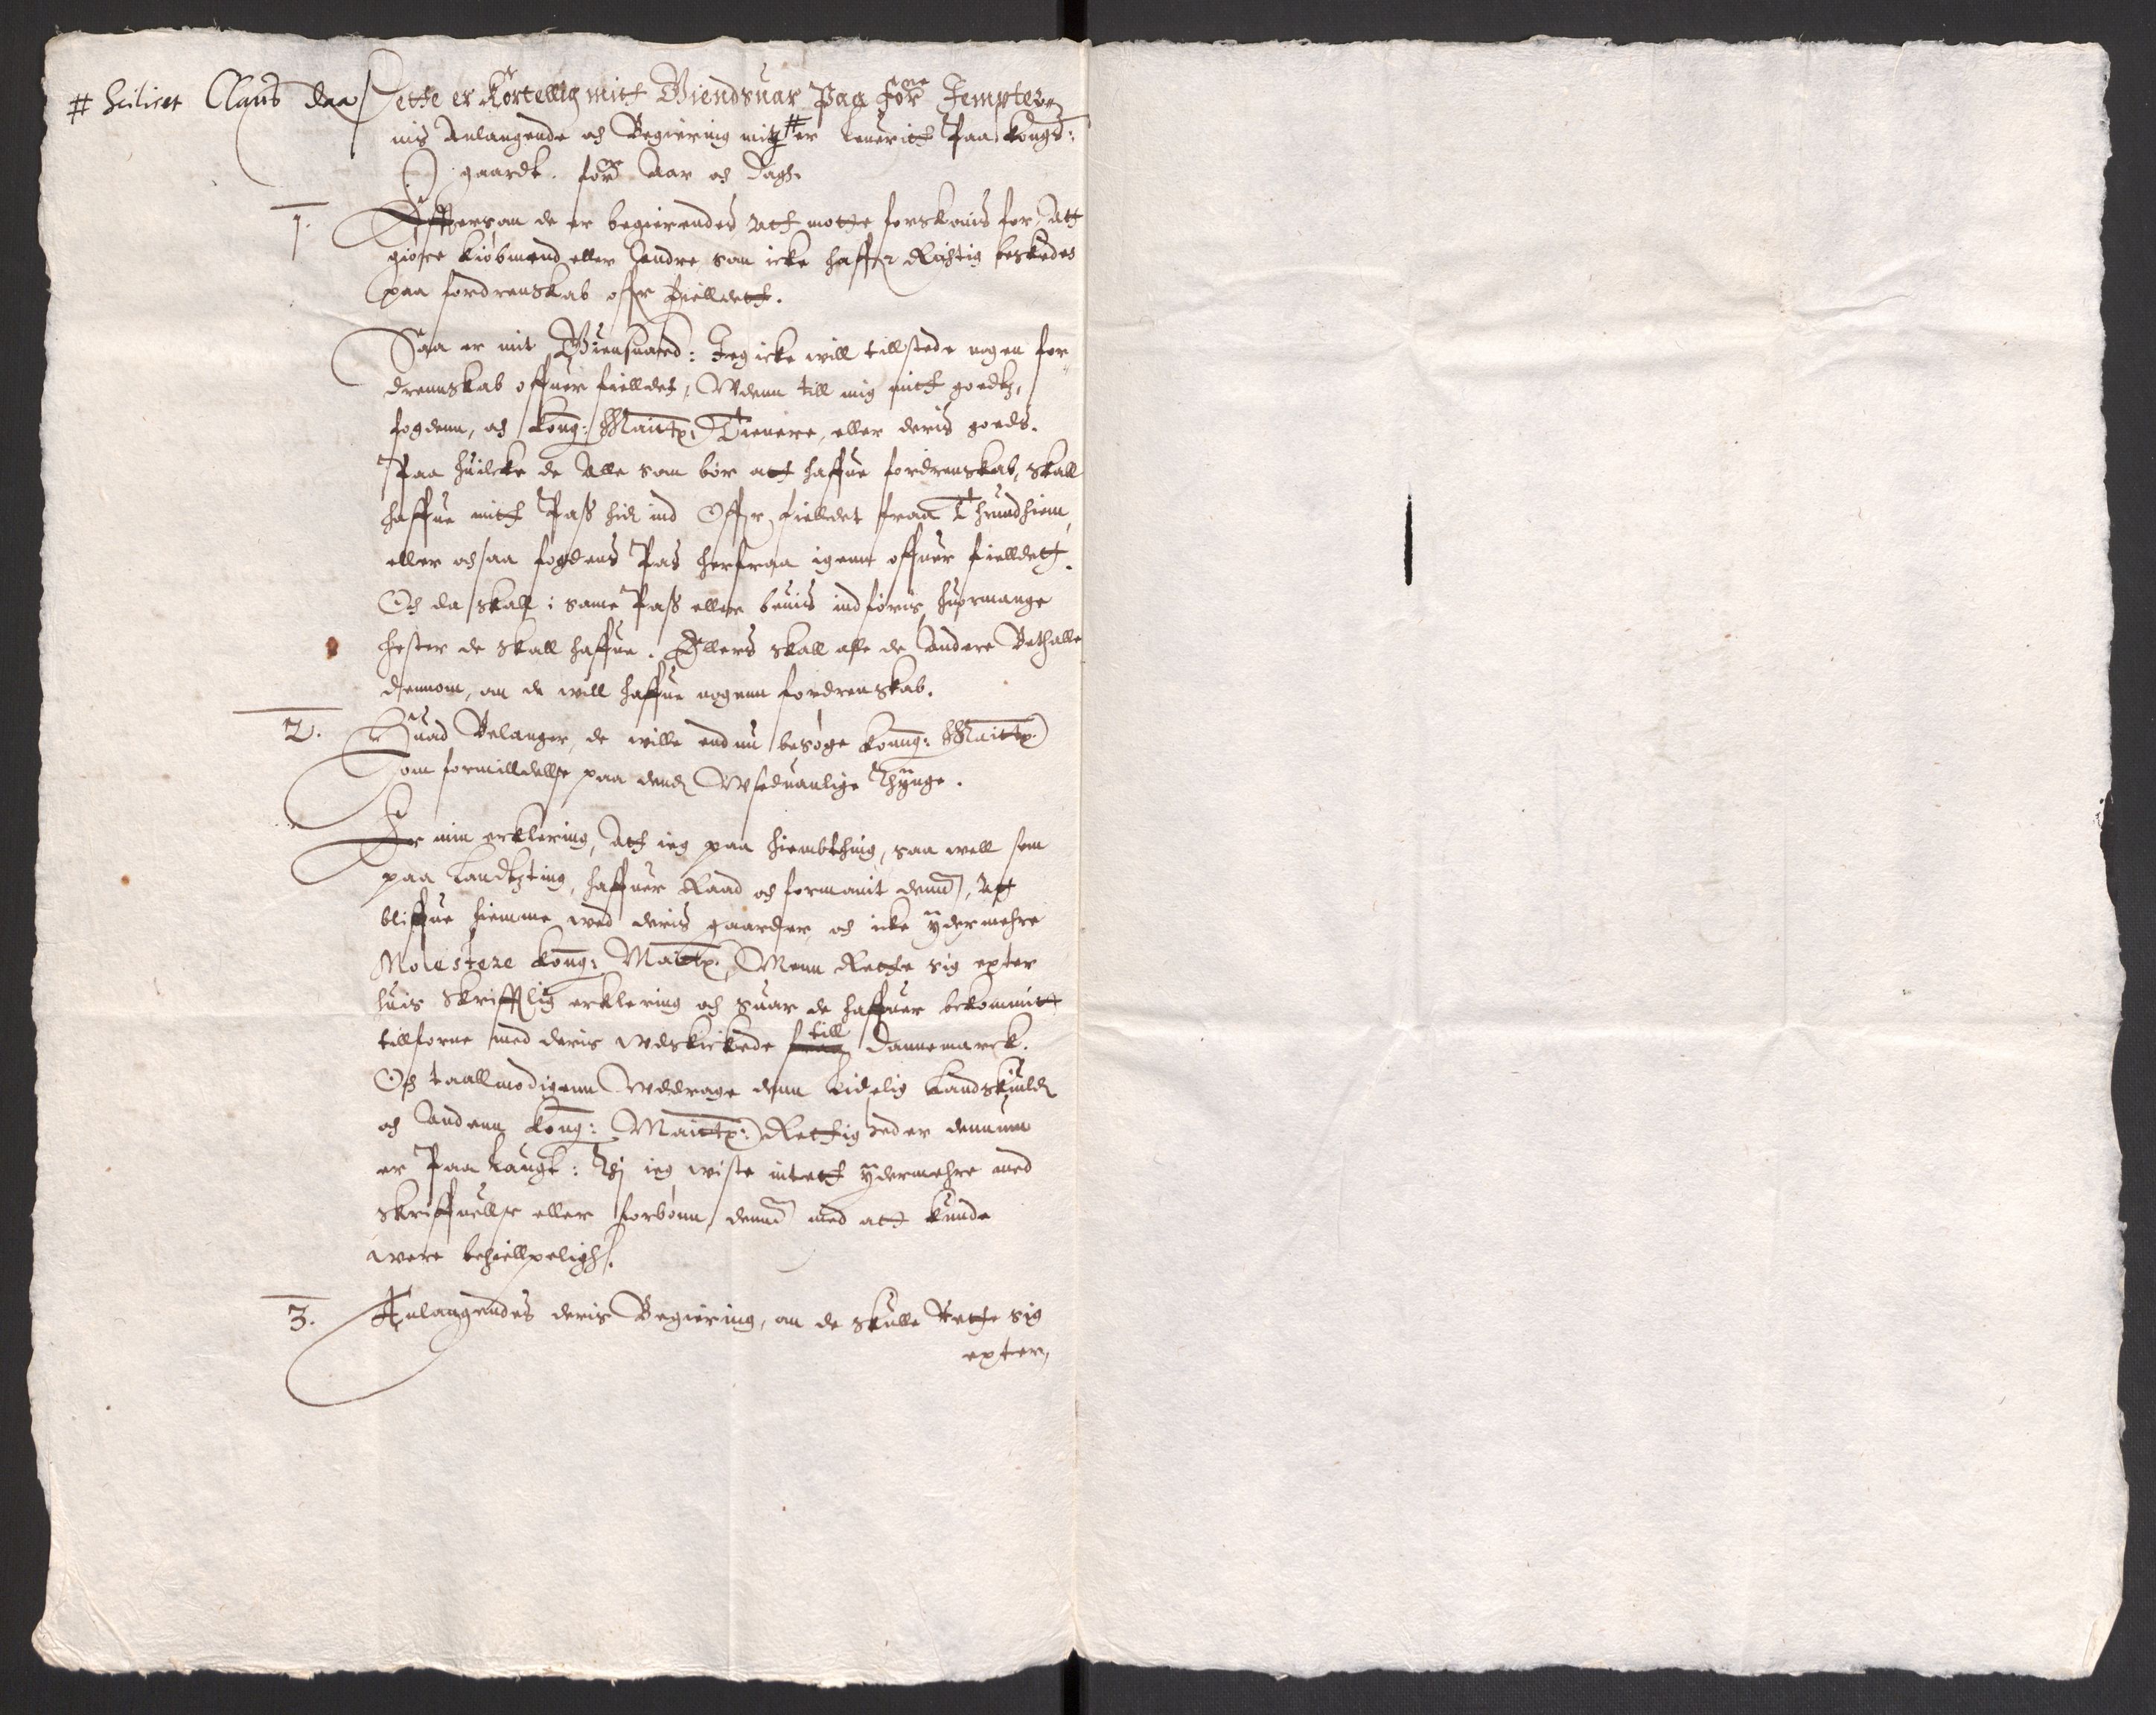 # Scilicet Claus daa
Dette er Kortellig mitt Giendsuar Paa forne Jempter¬
nis Anlangende och Begiering mitz # er leuerit Paa Kongs:
gaardt. forne Aar och dagh.
1. Efftersom de er begierendes att motte forskonis for, Att
giøre kiøbmend eller andre som icke haffer Richtig beskeden
paa fordrenskab offr Fielldett.
Saa er mit Giensuard: Jeg icke will tillstede nogen for¬
drennskab offuer fielldet, Wdenn till mig mitt goedtz,
fogdenn, och Kong: Maitts: Tienere, eller deris goeds.
Paa huilcke de Alle som bør att haffue fordrenskab, skall
haffue mitt Pass hid ind Offr fielldet fraa Thrundhiem,
eller ochsaa fogdens Pas herfraa igenn offuer fielldett.
Och da skall i same Pass eller beuis indføris, huormange
hester de skall haffue. Ellers skall alle de Andere Bethalle
dennom, om de will haffue nogenn fordrenskab.
2. Huad Belanger, de wille endnu besøge Konng: Maitts:
om formilldellse paa dend Wseduanlige Thynge.
Er min erklering, Att ieg paa hiembthing, saa well som
paa Landtzting, haffuer Raad och formanit dennd, Att
bliffue hiemme wed deris gaarder, och icke ydermehre
Molestere Kong: Maitts: Menn Rette sig epter
huis skrifftlig erklering och suar de haffuer bekommitt
tillforne med deris wdskickede fraa till Dannemarck.
Och taallmodigenn Wddrage denn lidelig Landskyuld
och Andenn Kong: Maitts: Rettigheder dennum
er Paa Laugt: Thj ieg wiste intett ydermehre med
skriffuellse eller forbønn dennd med att kunde
were behiellpeligh.
3. Anlangendes deris Begiering, om de skulle Rette sig
epter,